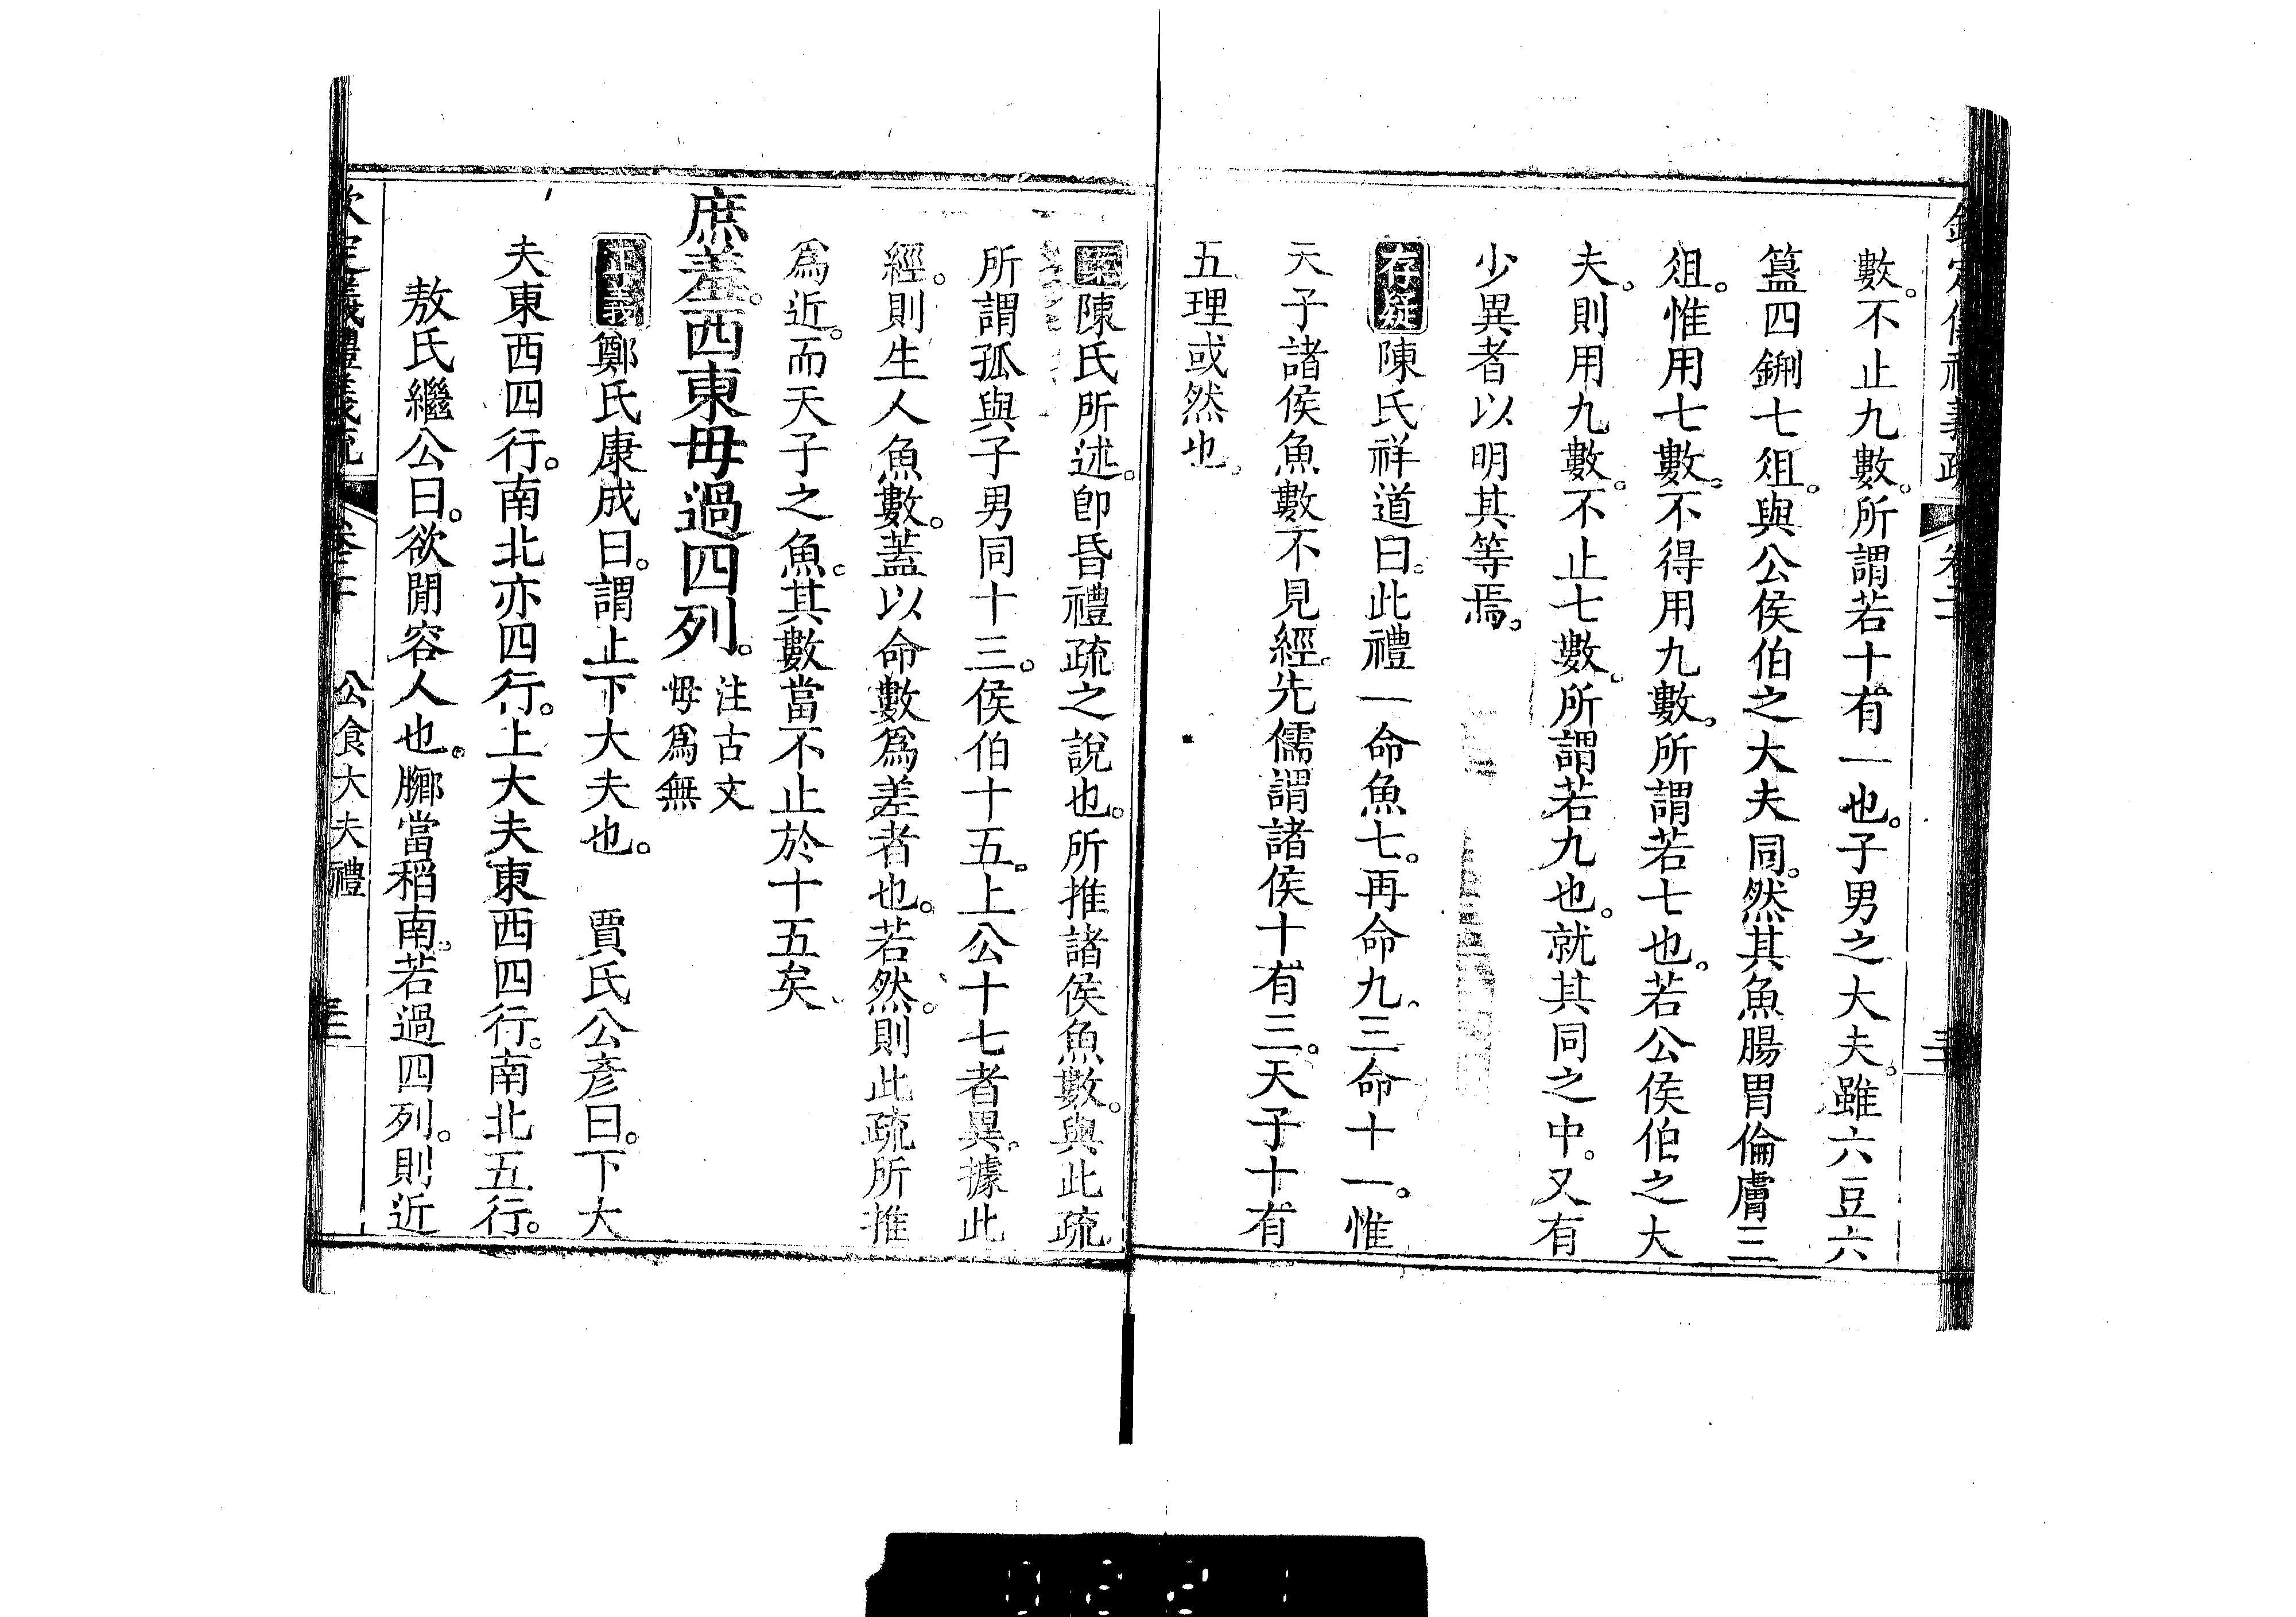 數。不止九數。所謂若十有一也。子男之大夫。雖六豆六
簋四鉶七俎。與公侯伯之大夫同。然其魚腸胃倫膚三
俎。惟用七數。不得用九數。所謂若七也。若公侯伯之大
夫。則用九數。不止七數。所謂若九也。就其同之中。又有
少異者以明其等焉。
存疑陳氏祥道曰。此禮一命魚七。再命九。三命十一。惟
天子諸侯魚數不見經。先儒謂諸侯十有三。天子十有
五理或然也。
案陳氏所述。卽昏禮疏之說也。所推諸侯魚數。與此疏
所謂孤與子男同十三。侯伯十五。上公十七者異。據此
經。則生人魚數。蓋以命數爲差者也。若然。則此疏所推
爲近。而天子之魚。其數當不止於十五矣
庶羞。西東毋過四列。注古文毋爲無
正義鄭氏康成曰。謂上下大夫也。 賈氏公彥曰。下大
夫東西四行。南北亦四行。上大夫東西四行。南北五行。
敖氏繼公曰。欲閒容人也。膷當稻南。若過四列。則近
欽定儀禮義疏 卷二十 公食大夫禮